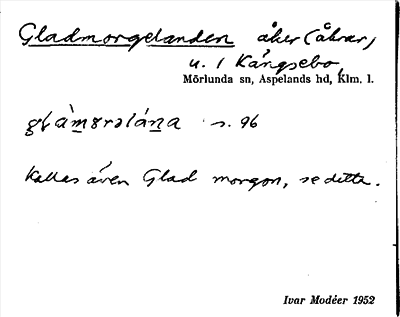 Gladmorgelanden åker (åkrar)
u. 1 Kångsebo,
Mörlunda sn, Aspelands hd, Klm. l.
s. 96
Kallas även Glad morgon, se detta.
Ivar Modéer 1952